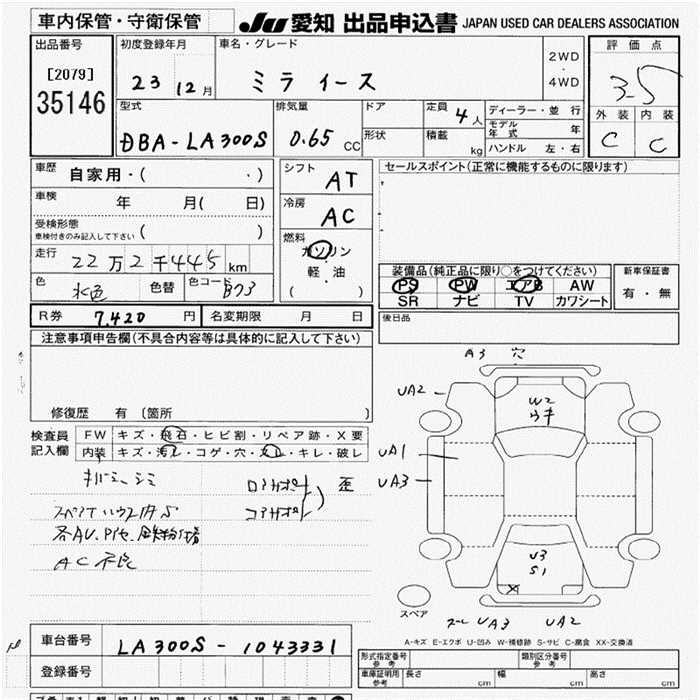 車内保管・守衛保管
JU 愛知 出品申込書 JAPAN USED CAR DEALERS ASSOCIATION
出品番号
[2079]
35146
初度登録年月
23 12 月
車名・グレード
ミラ イース
2WD
・
4WD
評価点
3-5
外装 内装
C C
型式
DBA-LA300S
排気量
0.65 CC
ドア
形状
定員 4 人
積載 kg
ディーラー・並 行
モデル年式 年
ハンドル 左・右
車歴 自家用・( ・ )
車検 年 月( 日)
受検形態
車検付きのみ記入して下さい ( )
走行 22万2千445 km
色 水色 色替 色コード B73
シフト
AT
冷房
AC
燃料
ガソリン
軽・油
( )
セールスポイント(正常に機能するものに限ります)
装備品(純正品に限り○をつけてください)
PS PW エアB AW
SR ナビ TV カワシート
新車保証書
有・無
R券 7,420 円 名変期限 月 日
後日品
注意事項申告欄(不具合内容等は具体的に記入して下さい)
修復歴 有 〔箇所 〕
検査員
記入欄
FW キズ・飛石・ヒビ割・リペア跡・X要
内装 キズ・汚れ・コゲ・穴・スレ・キレ・破レ
シミ
スペアT ハウス
AC不良
ロアサポート
コアサポート
歪
A3 穴
UA2
W2
UA1
UA3
U3
S1
スペア
UA3 UA2
A-キズ E-エクボ U-凹み W-補修跡 S-サビ C-腐食 XX-交換済
車台番号 LA300S-1043331
登録番号
型式指定番号
参考
類別区分番号
参考
車庫証明用
参考
長さ cm 幅 cm 高さ cm